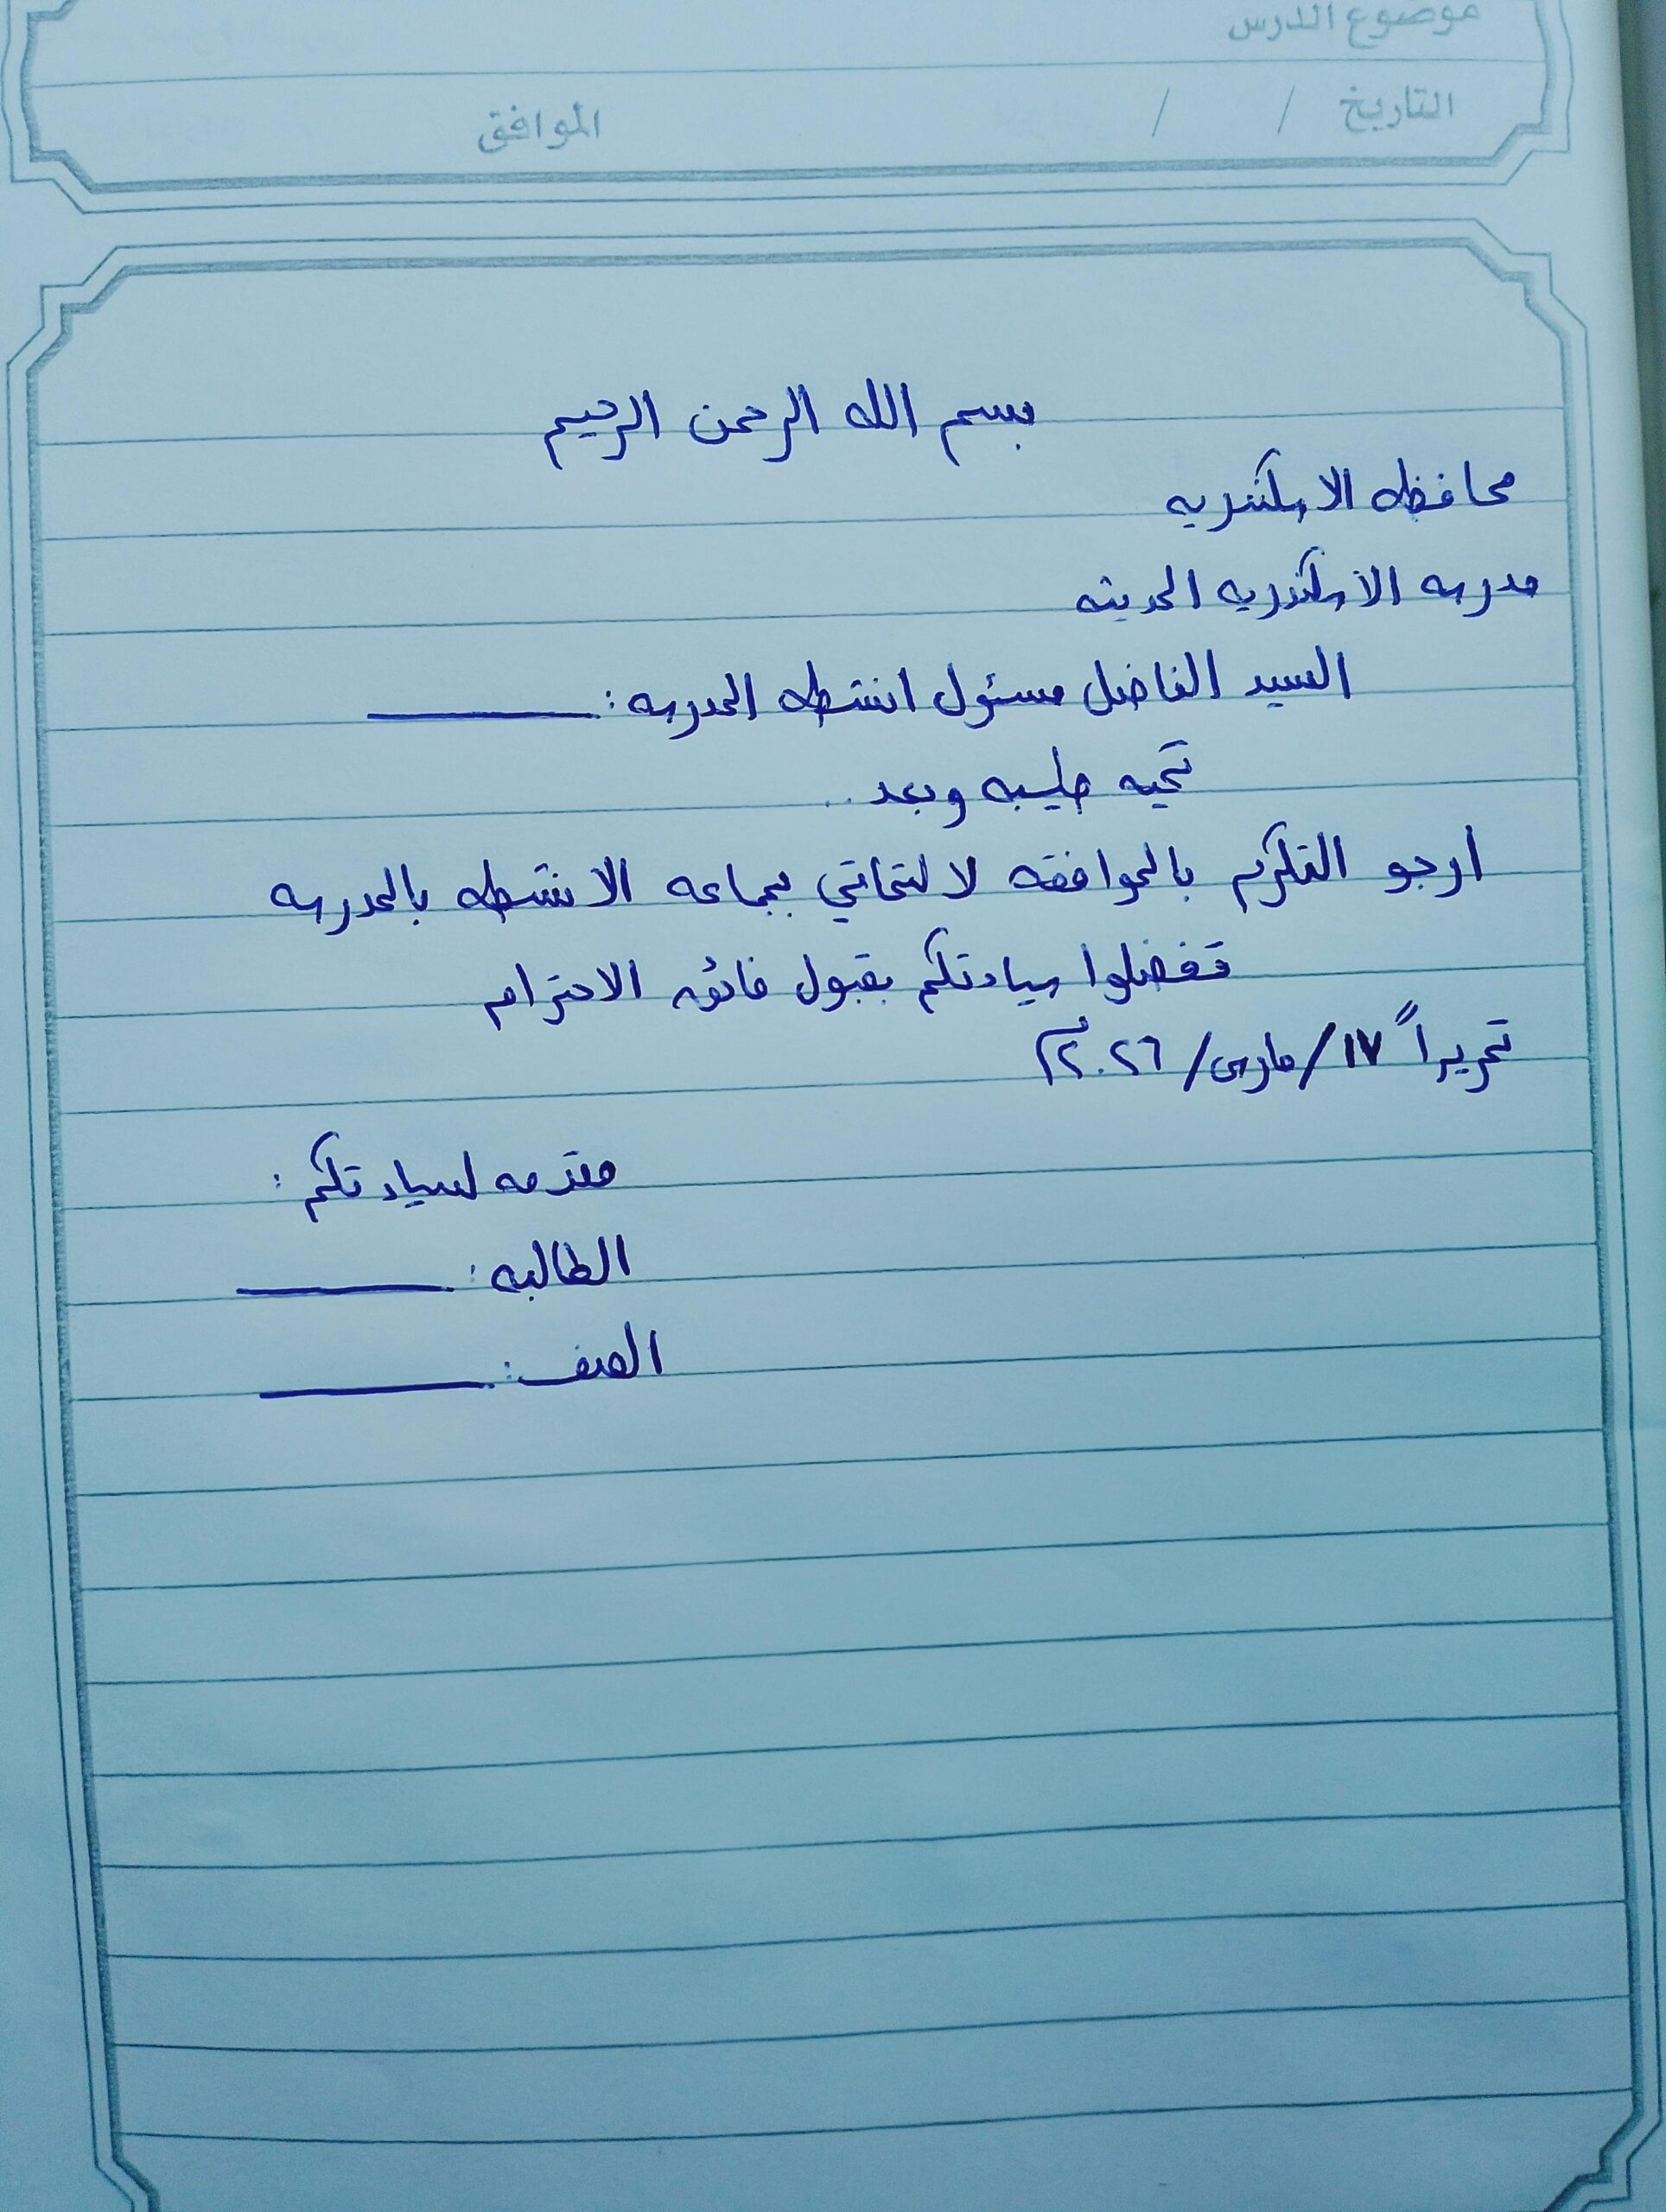 موضوع الدرس
التاريخ / / الموافق
بسم الله الرحمن الرحيم
محافظه الاسكندريه
مدرسه الاسكندريه الحديثه
السيد الفاضل مسئول انشطه المدرسه : ______
تحيه طيبه وبعد ..
ارجو التكرم بالموافقه لالتحاقي بجماعه الانشطه بالمدرسه
تفضلوا سيادتكم بقبول فائق الاحترام
تحريراً ١٧/مارس/٢٠٢٦م
مقدمه لسيادتكم :
الطالبه : ______
الصف : ______